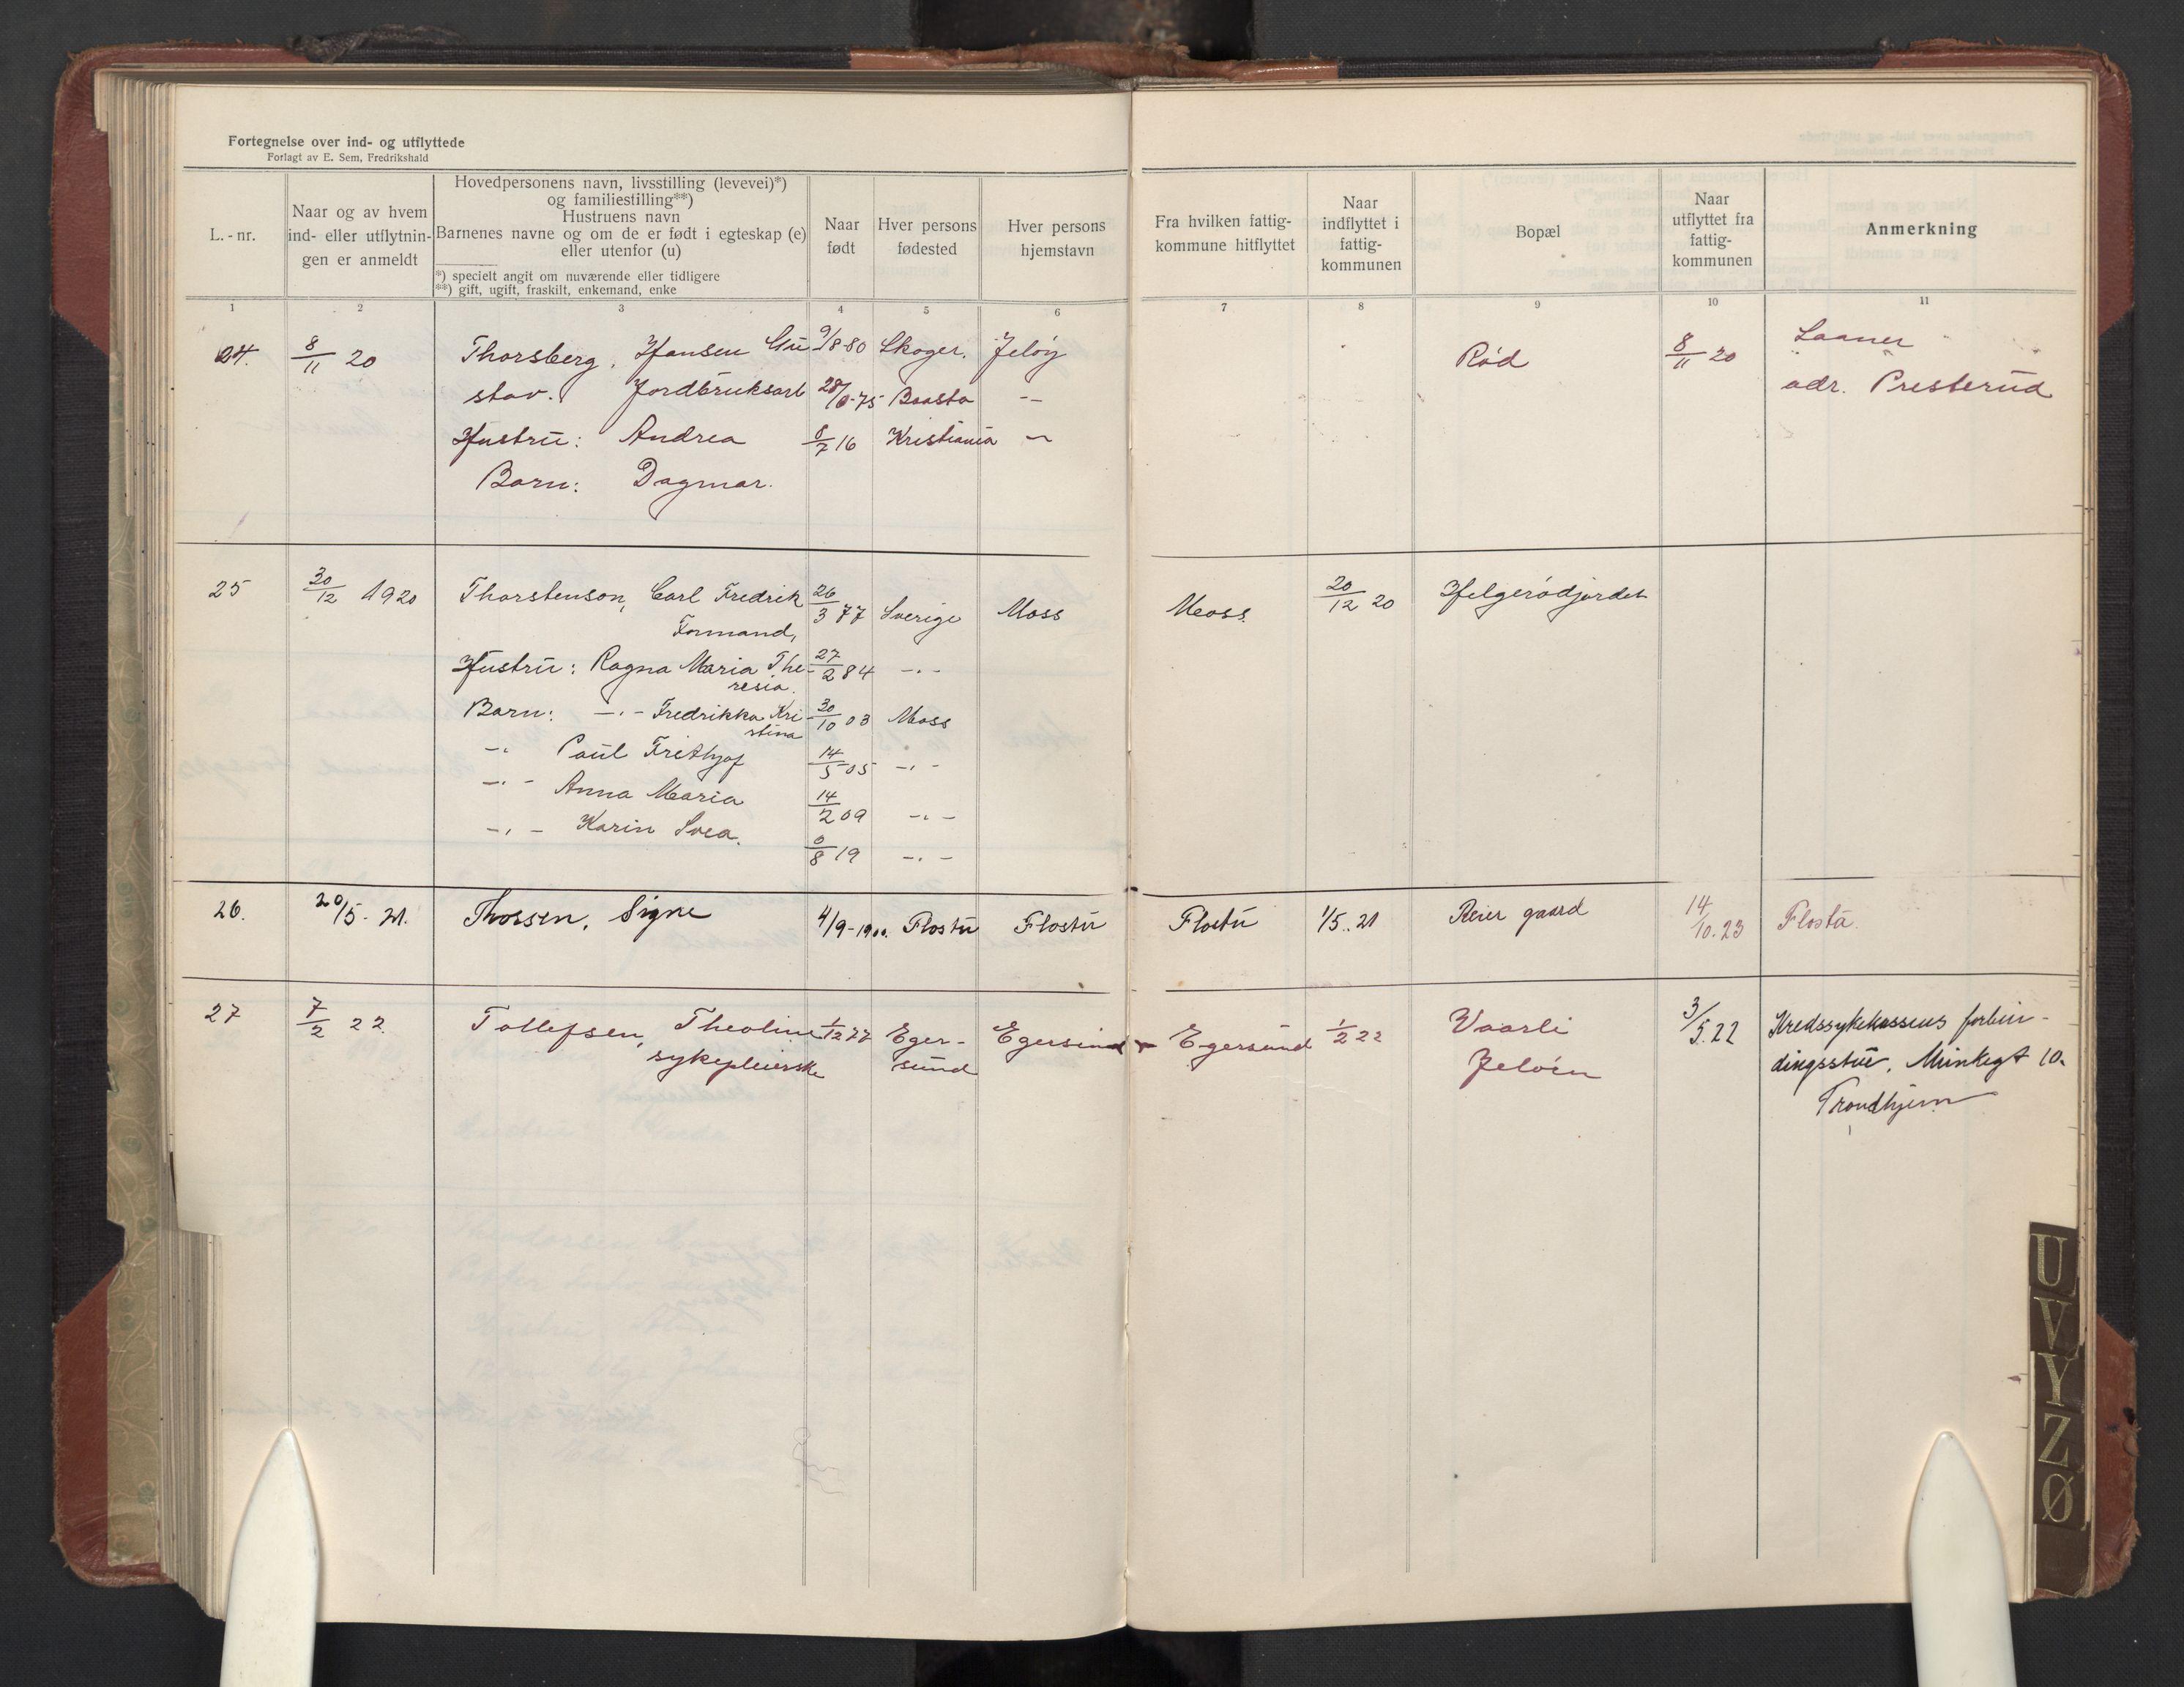 Fortegnelse over ind- og utflyttede
Forlagt av E. Sem, Fredrikshald
L.-nr.
Naar og av hvem ind- eller utflytnin- gen er anmeldt
Hovedpersonens navn, livsstilling (levevei)*)
og familiestilling**)
Hustruens navn
Barnenes navne og om de er født i egteskap (e)
eller utenfor (u)
*) specielt angit om nuværende eller tidligere
**) gift, ugift, fraskilt, enkemand, enke
Naar født
Hver persons fødested
Hver persons hjemstavn
Fra hvilken fattig- kommune hitflyttet
Naar indflyttet i fattig- kommunen
Bopæl
Naar utflyttet fra fattig- kommunen
Anmerkning
1 2 3 4 5 6 7 8 9 10 11
24. 8/11 20 Thorsberg, Hansen Gu 9/8 80 Skoger. Jeløy Rød 8/11 20 Laaner
stav. Jordbruksarb 28/ -75 Baasta -- adr. Presterud
Hustru: Andrea 8/7 16 Kristiania -
Barn: Dagmar.
25 30/12 1920 Thorstenson, Carl Fredrik 26/3 77 Sverige Moss Moss. 20/12 20 Helgerødjordet
Formand,
Hustru: Ragna Maria The- 27/2 84 -.-
resia.
Barn: -.- Fredrikka Kri- 30/10 03 Moss
stina
-.- Paul Frithjof 14/5 05 -.-
-.- Anna Maria 14/2 09 -.-
-.- Karin Svea. /8 19 -.-
26. 20/5-21. Thorsen, Signe 4/9-1900. Flosta Flosta Flosta 1/5.21 Reier gaard 14/10.23 Flosta.
27 7/2 22. Tollefsen, Theoline 1/12 77 Eger- Egersund Egersund 1/2 22 Vaarli 3/5.22 Kredssykekassens forbin-
sykepleierske sund Jeløen dingsstue, Munkegt 10.
Trondhjem
U
V
Y
Z
Ø